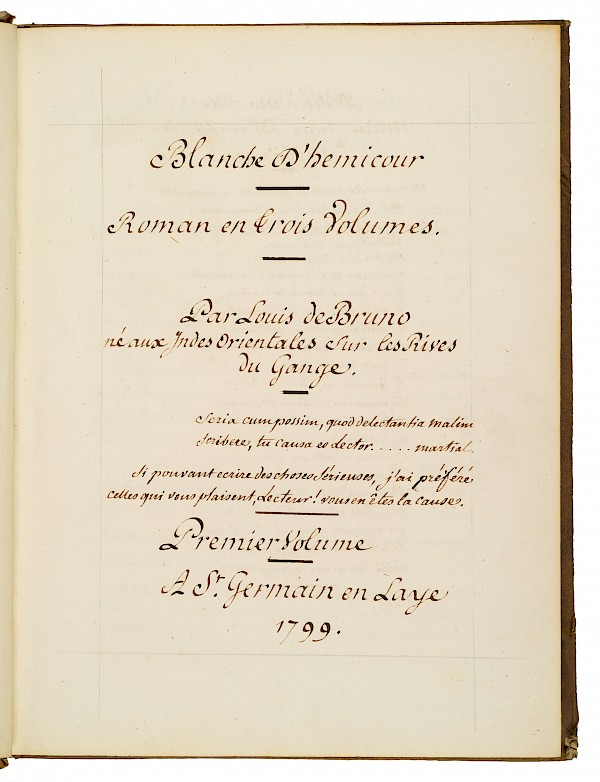 Blanche D'hemicour
Roman en trois Volumes.
Par Louis de Bruno
né aux Indes Orientales sur les Rives
du Gange.
Seria cum possim, quod delectantia malim
Scribere, tu causa es Lector..... martial.
Si pouvant ecrire des choses Sérieuses, j'ai préféré
celles qui vous plaisent, Lecteur! vous en êtes la cause.
Premier Volume
A St. Germain en Laye
1799.